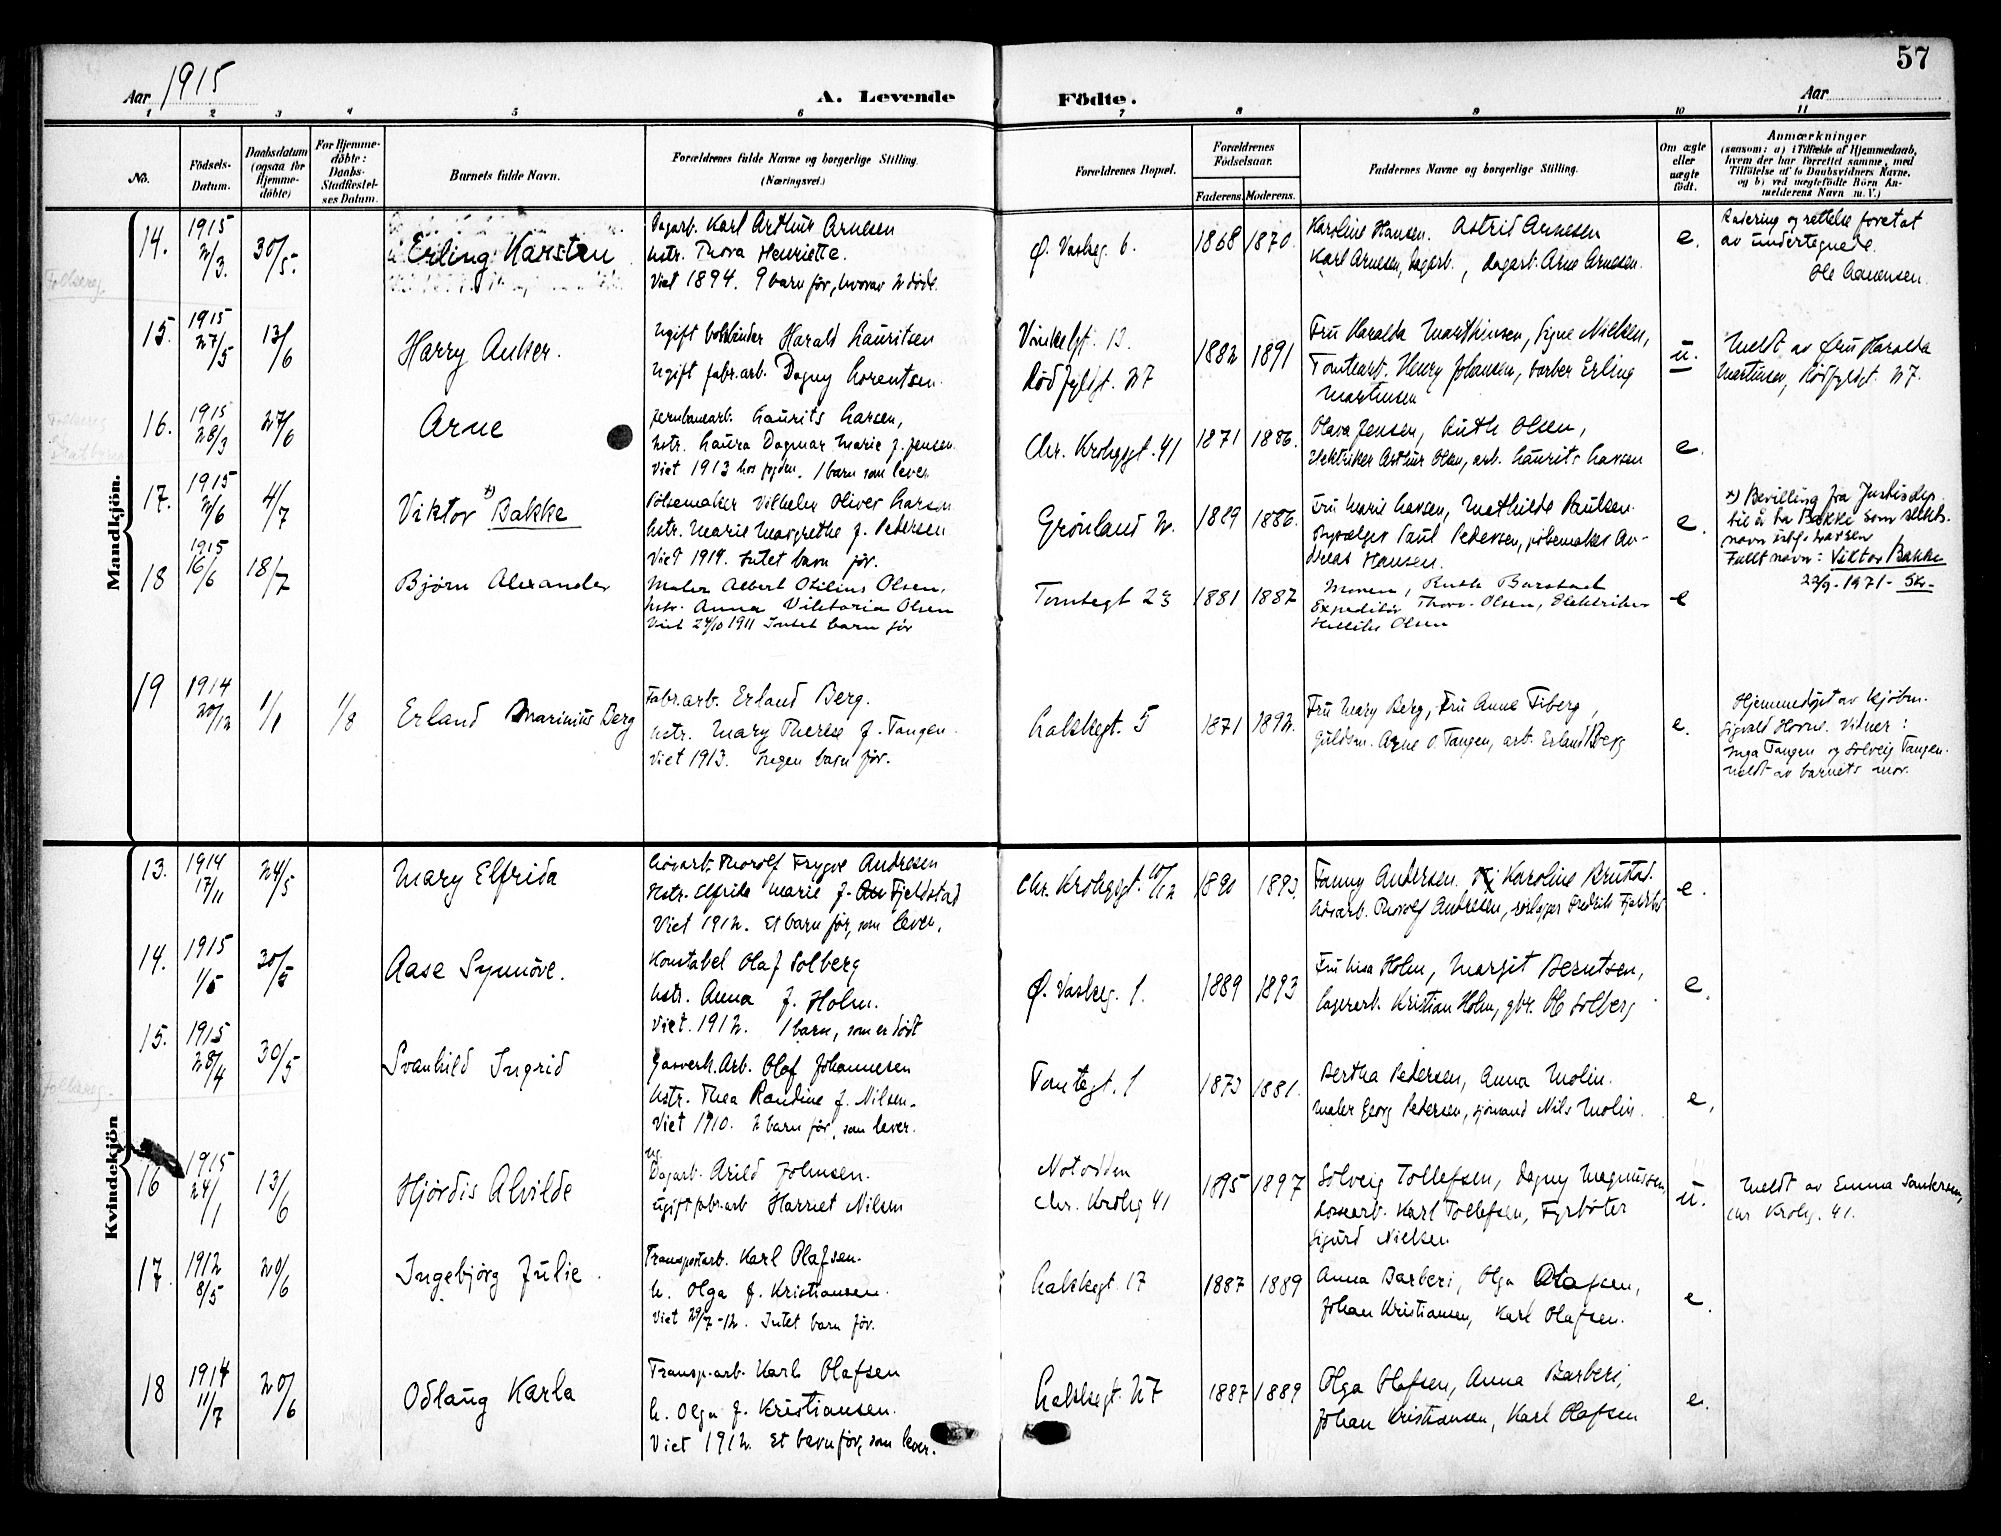 57
Aar 1915
A. Levende
Födte.
Aar
1 2 3 4 5 6 7 8 9 10 11
No.
Födsels-
Datum.
Daabsdatum
(ogsaa for
Hjemme-
döbte)
For Hjemme-
döbte:
Daabs-
Stadfæstel-
ses Datum.
Barnets fulde Navn.
Forældrenes fulde Navne og borgerlige Stilling.
(Næringsvei.)
Forældrenes Bopæl.
Forældrenes
Födselsaar.
Faderens. Moderens.
Faddernes Navne og borgerlige Stilling.
Om ægte
eller
uægte
födt.
Anmærkninger
(saasom: a) i Tilfælde af Hjemmedaab,
hvem der har forrettet samme, med
Tilföielse af to Daabsvidners Navne,
og b) ved uægtefödte Börn An-
melderens Navn m. V.)
Mandkjön.
14. 1915 2/3. 30/5. Erling Karsten
Dagarb. Karl Arthur Arnesen
hstr. Thora Henriette.
Viet 1894. 9 barn før, hvorav 2 døde.
Ø. Vaskeg. 6. 1868 1870.
Karoline Hansen. Astrid Arnesen
Karl Arnesen, dagarb., dagarb. Arne Arnesen.
e.
Rasering og rettelse foretat
av undertegnede.
15. 1915 27/5 13/6 Harry Anker.
Ugift bokbinder Harald Lauritsen
Ugift fabr.arb. Dagny Lorentsen.
Vinkelgt. 13.
Rødfyldgt. 27
1882 1891
Fru Haralda Marthinsen, Signe Nielsen,
Tomtearb. Henry Johansen, barber Erling
Martinsen
u.
Meldt av fru Haralda
Martinsen, Rødfyldgt. 27.
16. 1915 28/3 27/6 Arne
Jernbanearb. Laurits Larsen,
hstr. Laura Dagmar Marie f. Jensen.
Viet 1913 hos fogden. 1 barn som lever
Chr. Krohgsgt. 41 1871 1886.
Olava Jensen, Ruth Olsen,
Elektriker Arthur Olsen, arb. Laurits Larsen
e.
17. 1915 2/6 4/7 Viktor x) Bakke
Pølsemaker Vilhelm Oliver Larsen
hstr. Marie Margrethe f. Pedersen
Viet 1914. Intet barn før.
Grønland 2. 1889 1886.
Fru Marie Larsen, Mathilde Paulsen.
Paul Pedersen, pølsemaker An-
dreas Hansen.
e.
x) Bevilling fra Justisdep.
til å ta Bakke som slekts-
navn istf. Larsen
Fullt navn: Viktor Bakke
22/9-1971- Sk-
18 1915 16/6 18/7 Bjørn Alexander
Maler Albert Otilius Olsen,
hstr. Anna Viktoria Olsen
Viet 24/10 1911 Intet barn før
Tomtegt 23 1881 1887
Moren, Ruth
Expeditör Thorv. Olsen, Elektriker
Olsen
e
19 1914 20/12 1/1 1/8 Erland Marinius Berg
Fabr.arb. Erland Berg.
hstr. Mary Therese f. Tangen.
Viet 1913. Ingen barn før.
Lakkegt. 5 1871 1892.
Fru Mary Berg, Fru Anne Fiberg,
Guldsm. Arne O. Tangen, arb. Erland Berg
e.
Hjemmedøpt av kjøbm.
Sigvald Horne. Vidner:
Inga Tangen og Solveig Tangen.
Meldt av barnets mor.
Kvindekjön
13. 1914 17/11 24/5 Mary Elfrida
Løsarb. Thorolf Trygve Andresen
Hstr. Elfrida Marie f. Fjeldstad
Viet 1912. Et barn før, som lever.
Chr. Krohgsgt. 10/12 1890 1893.
Fanny Andersen. Karoline Brustad.
Løsarb. Thorolf Andresen, rørlægger Fredrik Fjeldstad
e.
14. 1915 1/5 30/5 Aase Synnöve.
Konstabel Olaf Solberg
hstr. Anna f. Holm.
Viet. 1912. 1 barn, som er dödt
Ø. Vaskeg. 1. 1889 1893
Fru Lisa Holm, Margit Berntsen,
Lagerarb. Kristian Holm, gbr. Ole Solberg
e.
15. 1915 28/4 30/5 Svanhild Ingrid
Gasverk.Arb. Olaf Johannesen
hstr. Thea Randine f. Nilsen.
Viet 1910. 2 barn før, som lever.
Tomtegt. 1 1873 1881.
Bertha Pedersen, Anna Molin.
Maler Georg Pedersen, sjömand Nils Molin.
e.
16 1915 24/1 13/6 Hjördis Alvilde
Ug.
Dagarb. Arild Johnsen.
ugift fabr.arb Harriet Nilsen
Notodden
Chr. Krohg 41
1895 1897
Solveig Tollefsen, Dagny Magnussen,
Losearb. Karl Tollefsen, Fyrböter
Sigurd Nielsen
u.
Meldt av Emma
Chr Krohg. 41.
17. 1912 8/5 20/6 Ingebjørg Julie.
Transportarb. Karl Olafsen.
h. Olga f. Kristiansen.
Viet 29/7-12. Intet barn før.
Lakkegt 17 1887 1889
Anna Barberi, Olga Olafsen,
Johan Kristiansen, Karl Olafsen.
e.
18 1914 11/7 20/6 Odlaug Karla
Transp.arb. Karl Olafsen
h. Olga f. Kristiansen.
Viet 1912. Et barn før, som lever.
Lakkegt. 27 1887 1889
Olga Olafsen, Anna Barberi,
Johan Kristiansen, Karl Olafsen
e.